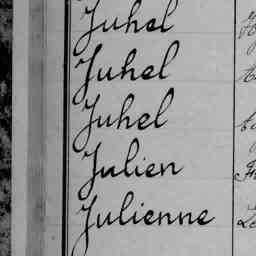 Juhel
Juhel
Juhel
Julien
Julienne